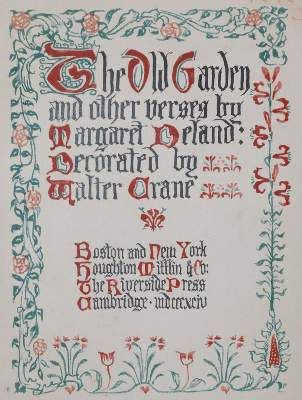 The Old Garden
and other verses by
Margaret Deland:
Decorated by
Walter Crane
Boston and New York
Houghton Mifflin & Co:
The Riverside Press
Cambridge · mdcccxciv